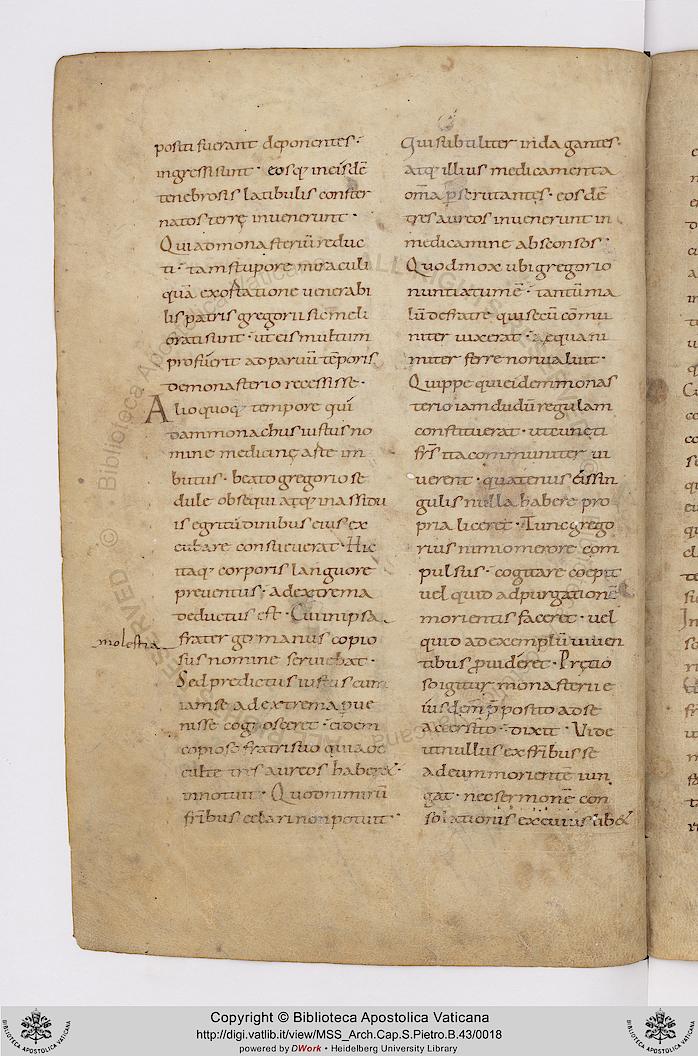 positi fuerant deponentes·
ingressi sunt· eosq; in eisdē
tenebrosis latibulis conster
natos terrę invenerunt·
Qui ad monasteriū reduc
ti· tam stupore miraculi
quā exortatione venerabi
lis patris gregorii sic meli
orati sunt· ut eis multum
profuerit ad parvū tēporis
de monasterio recessisse·
Alio quoq; tempore qui
dam monachus iustus no
mine medicinę arte im
butus· beato gregorio se
dule obsequi atq; in assidu
is egritudinibus eius ex
cubare consueverat· Hic
itaq; corporis languore
preventus· ad extrema
deductus est· Cui in ipsa
molestia
frater germanus copio
sus nomine serviebat·
Sed predictus iustus cum
iam se ad extrema pve
nisse cognosceret· eidem
copioso fratri suo quia oc
culte tres aureos haberet·
innotuit· Quod nimirū
frībus celari non potuit·
Qui subtiliter indagantes·
atq; illius medicamenta
omīa pscrutantes· eosdē
tres aureos invenerunt in
medicamine absconsos·
Quod mox ubi gregorio
nuntiatum ē· tantū ma
lū de fratre qui secū cōmu
niter vixerat· equani
miter ferre non valuit·
Quippe qui eidem monas
terio iam dudū regulam
constituerat· ut cuncti
frs ita communiter vi
verent· quatenus eis sin
gulis nulla habere pro
pria liceret· Tunc grego
rius nimio merore com
pulsus· cogitare coepit
vel quid ad purgationē
morientis faceret· vel
quid ad exemplū viven
tibus pvideret· Prętio
so igitur monasterii e
iusdem pposito ad se
accersito· dixit· Vide
ut nullus ex frībus se
ad eum morientē iun
gat· nec sermonē con
solationis ex cuiuslibet
© Biblioteca Apostolica Vaticana
Copyright © Biblioteca Apostolica Vaticana
http://digi.vatlib.it/view/MSS_Arch.Cap.S.Pietro.B.43/0018
powered by DWork • Heidelberg University Library